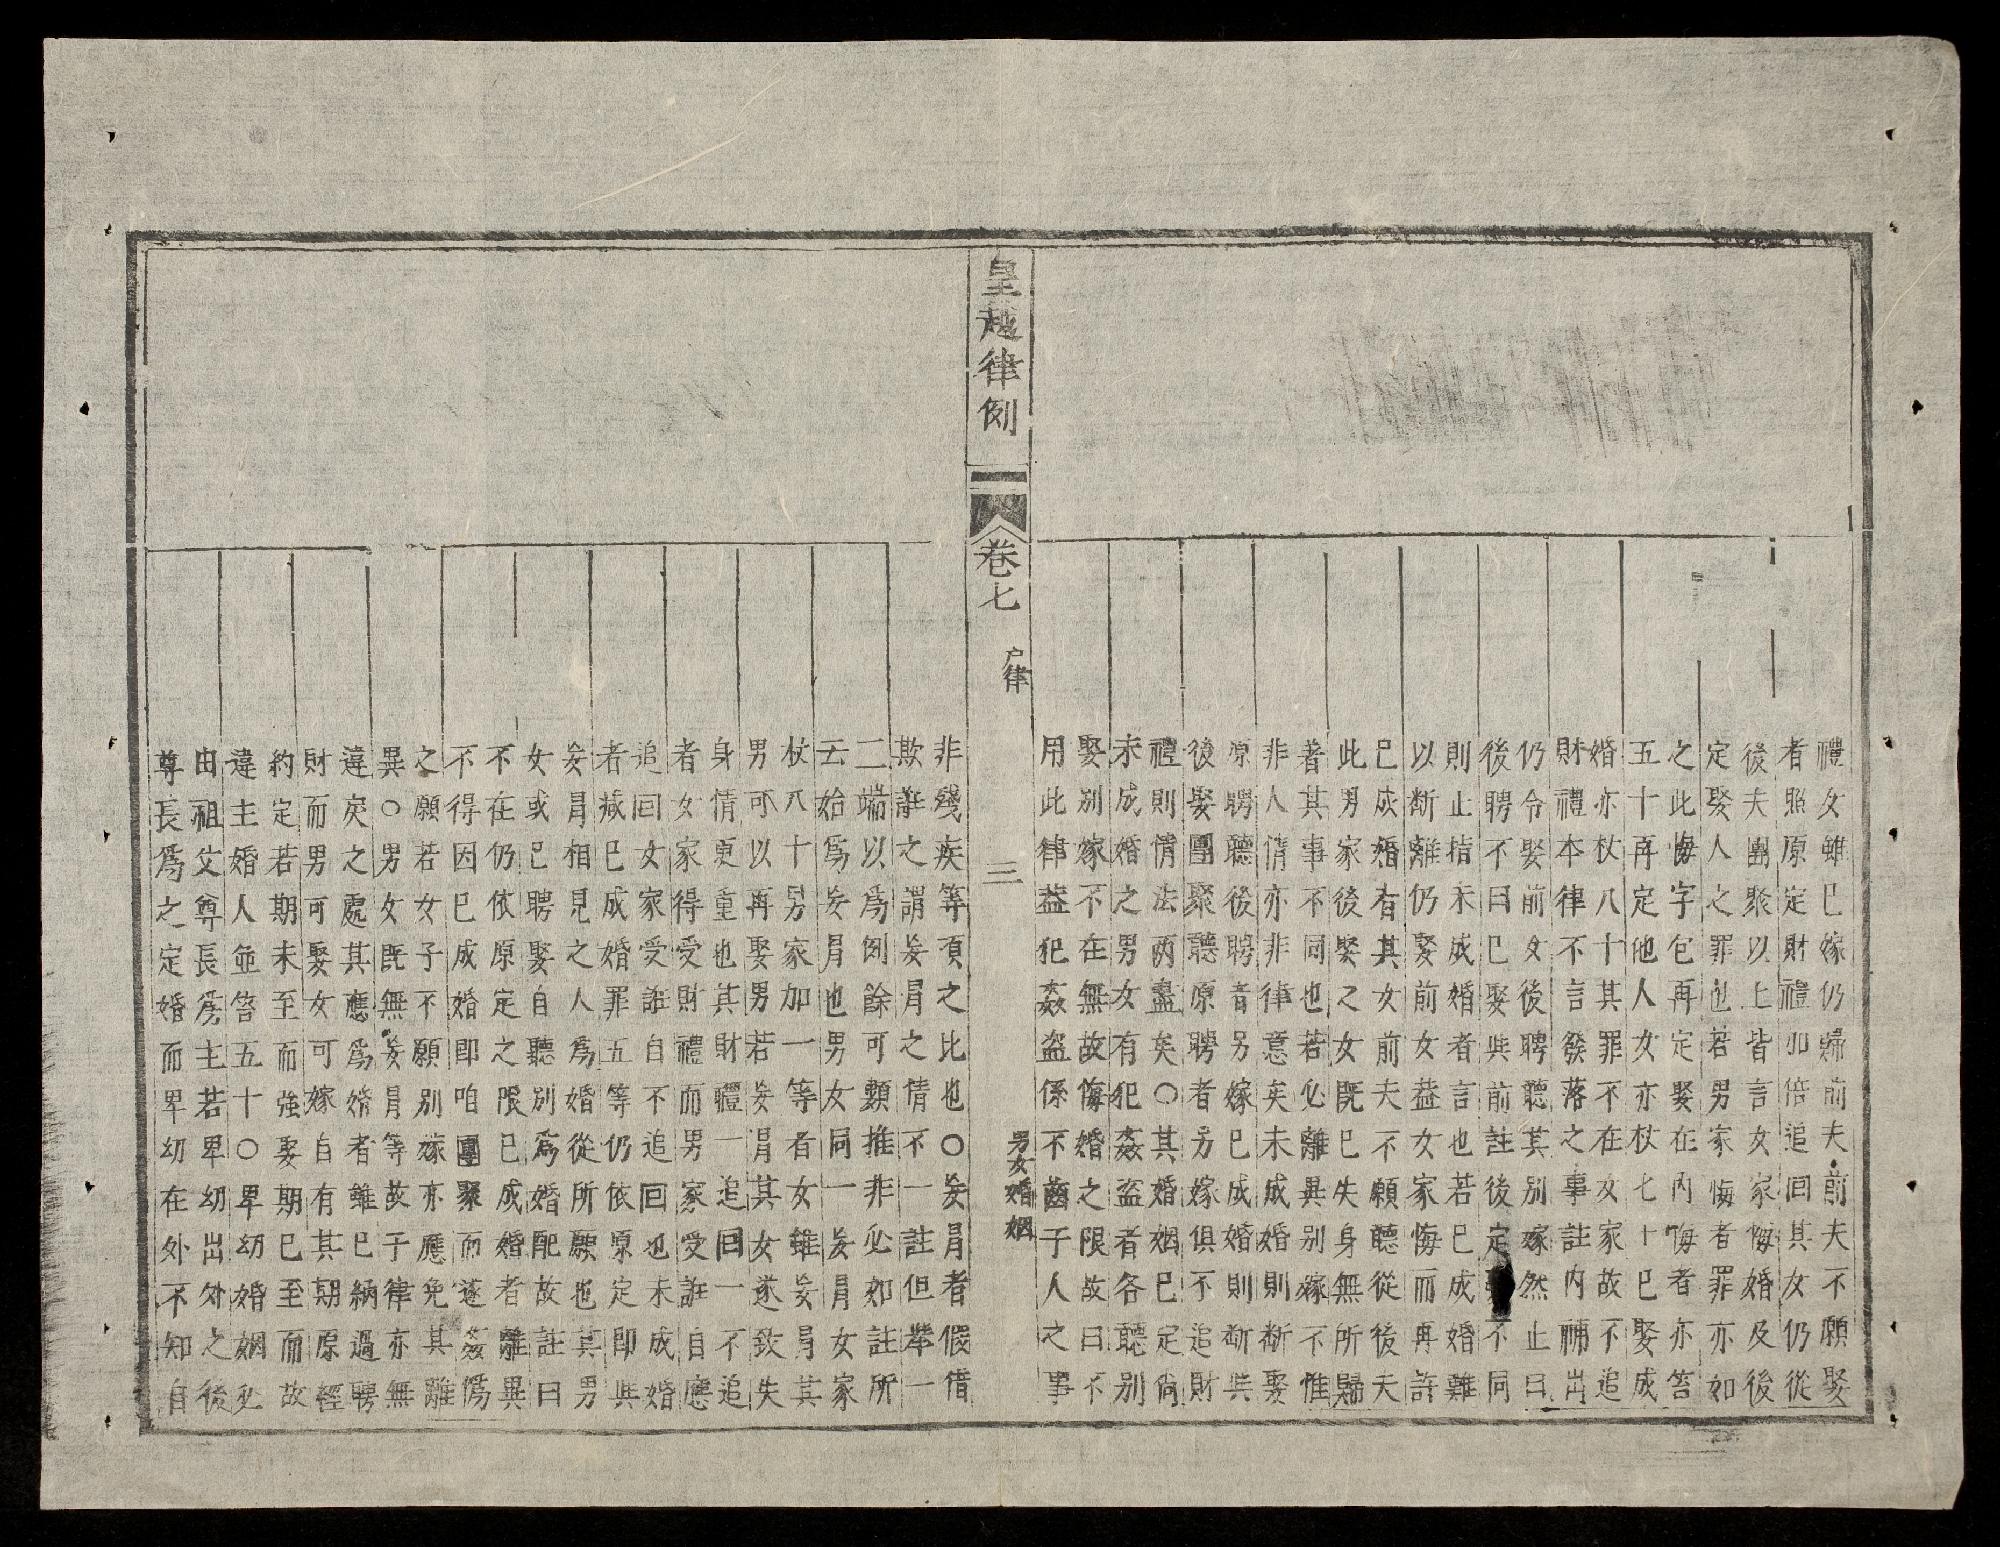 禮女雖已嫁仍歸前夫前夫不願娶
者照原定財禮加倍追回其女仍從
後夫團聚以上皆言女家悔婚及後
定娶人之罪也若男家悔者罪亦如
之此悔字包再定娶在內悔者亦笞
五十再定他人女亦杖七十已娶成
婚亦杖八十其罪不在女家故不追
財禮本律不言發落之事註內補出
仍令娶前女後聘聽其別嫁然止曰
後聘不曰已娶與前註後定娶不同
則止拮未成婚者言也若已成婚難
以斷離仍娶前女益女家悔而再許
已成婚有其女前夫不願聽從後天
此男家後娶之女既已失身無所歸
著其事不同也若必離異別嫁不惟
非人情亦非律意矣未成婚則斷娶
原聘聽後聘者另嫁已成婚則斷與
後娶團聚聽原聘者另嫁俱不追財
禮則情法兩盡矣〇其婚姻已定倘
未成婚之男女有犯姦盜者各聽別
娶別嫁不在無故悔婚之限故曰不
用此律葢犯姦盜係不齒于人之事
皇越律例
卷七
户律
三
男女婚姻
非殘疾等項之比也〇妄冐者假借
欺誑之謂妄冐之情不一註但舉一
二端以爲例餘可類推非必如註所
云始爲妄冐也男女同一妄冐女家
杖八十另家加一等者女雖妄冐其
男可以再娶男若妄冐其女遂致失
身情更重也其財禮一追回一不追
者女家得受財禮而男家受誑自應
追回女家受誑自不追回也未成婚
者减已成婚罪五等仍依原定即與
妄冐相見之人爲婚從所願也其男
女或已聘娶自聽別爲婚配故註曰
不在仍依原定之限已成婚者離異
不得因已成婚即咱團聚而遂姦僞
之願若女子不願別嫁亦應免其離
異〇男女既無妄冐等故于律亦無
違戾之處其應爲婚者雖已納過聘
財而男可娶女可嫁自有其期原輕
約定若期未至而強娶期已至而故
違主婚人並笞五十〇卑幼婚姻必
由祖父尊長爲主若卑幼出外之後
尊長爲之定婚而卑幼在外不知自